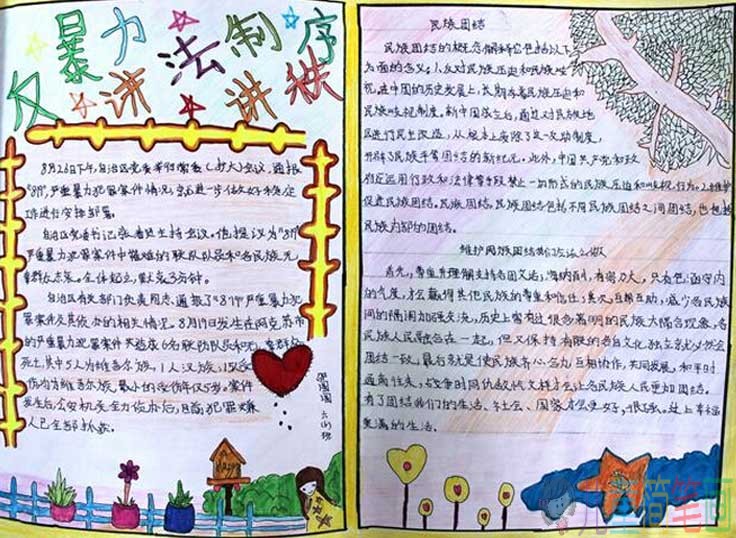 反暴力讲法制讲秩序
8月26日下午,自治区党委举行常委(扩大)会议,通报
"819"严重暴力犯罪案件情况,就进一步做好维稳工
作进行安排部署。
自治区党委书记张春贤主持会议。他提议为"819
严重暴力犯罪案件中罹难的联防队员和各民族无
辜群众志哀。全体起立,默哀3分钟。
自治区有关部门负责同志,通报了"819"严重暴力犯
罪案件及其侦办的相关情况。8月19日发生在阿克苏市
的严重暴力犯罪案件
死亡,其中5人为维吾尔族,1人汉族,15
伤均为维吾尔族,最小的受伤年仅5岁。案件
发生后,公安机关全力侦办后,目前,犯罪嫌
人已全部抓获。
民族团结
民族团结的概念解释它包括以下
方面的含义:1.反对民族压迫和民族歧
视。在中国的历史发展上,长期存着民族压迫和
民族歧视制度。新中国成立后,通过对民族地
区进行民主改造,从根本上废除了这一反动制度,
开辟了民族平等团结的新纪元。此外,中国共产党和政
府还运用行政和法律等手段禁止一切形式的民族压迫和歧视行为。2.维护
促进民族团结。民族团结。民族团结包括不同民族团结之间团结,也包括
民族内部的团结。
维护民族团结我应该怎么做
首先,尊重并理解支持各国文话;海纳百川,有容乃大,只有包涵宇内
的气度,才会赢得其他民族的尊重和信任;其次,互相互助,减少各民族
间的隔阂加强交流,历史上常有过很多著明的民族大隔合现象,各
民族人民融合在一起,但又保持有限的各自文化独立就必然会
团结一致,最后就是使民族齐心合力互相协作,共同发展,和平时
通商往来,战争时同仇敌忾,这样才会让各民族人民更加团结。
有了团结我们的生活、社会、国家才会更好,
美满的生活。
Happy
儿童简笔画